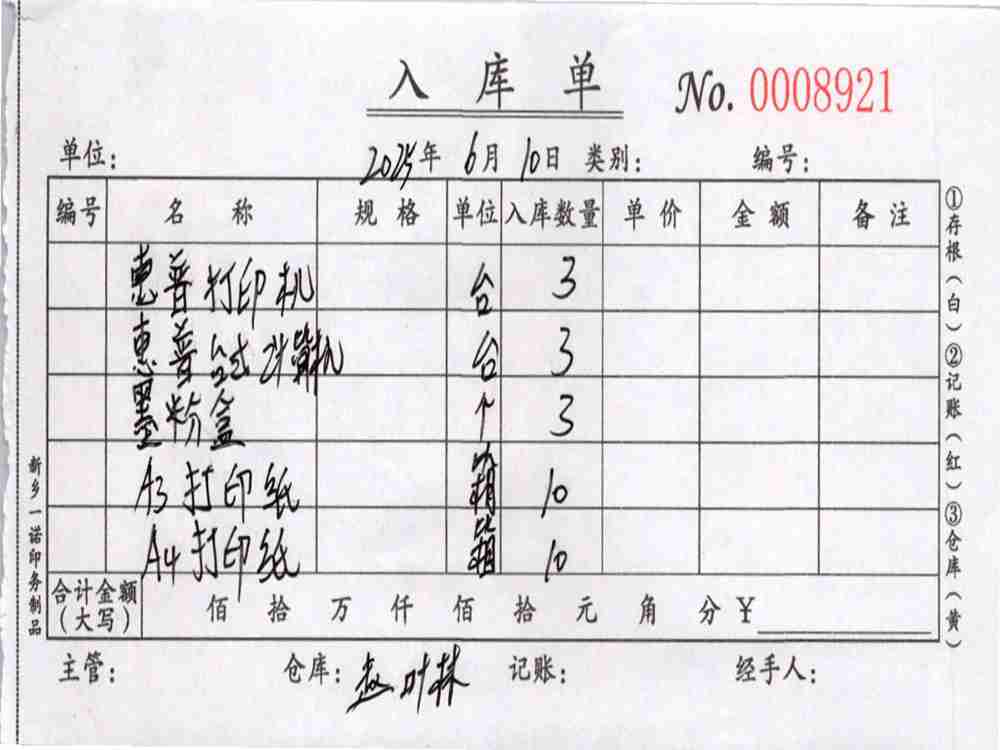 入库单 No. 0008921
单位： 2025年 6月 10日 类别： 编号：
编号 名称 规格 单位 入库数量 单价 金额 备注
惠普打印机 台 3
惠普台式计算机 台 3
墨粉盒 个 3
A3打印纸 箱 10
A4打印纸 箱 10
合计金额（大写） 佰 拾 万 仟 佰 拾 元 角 分 ¥
主管： 仓库：赵叶林 记账： 经手人：
①存根（白）②记账（红）③仓库（黄）
新乡一诺印务制品